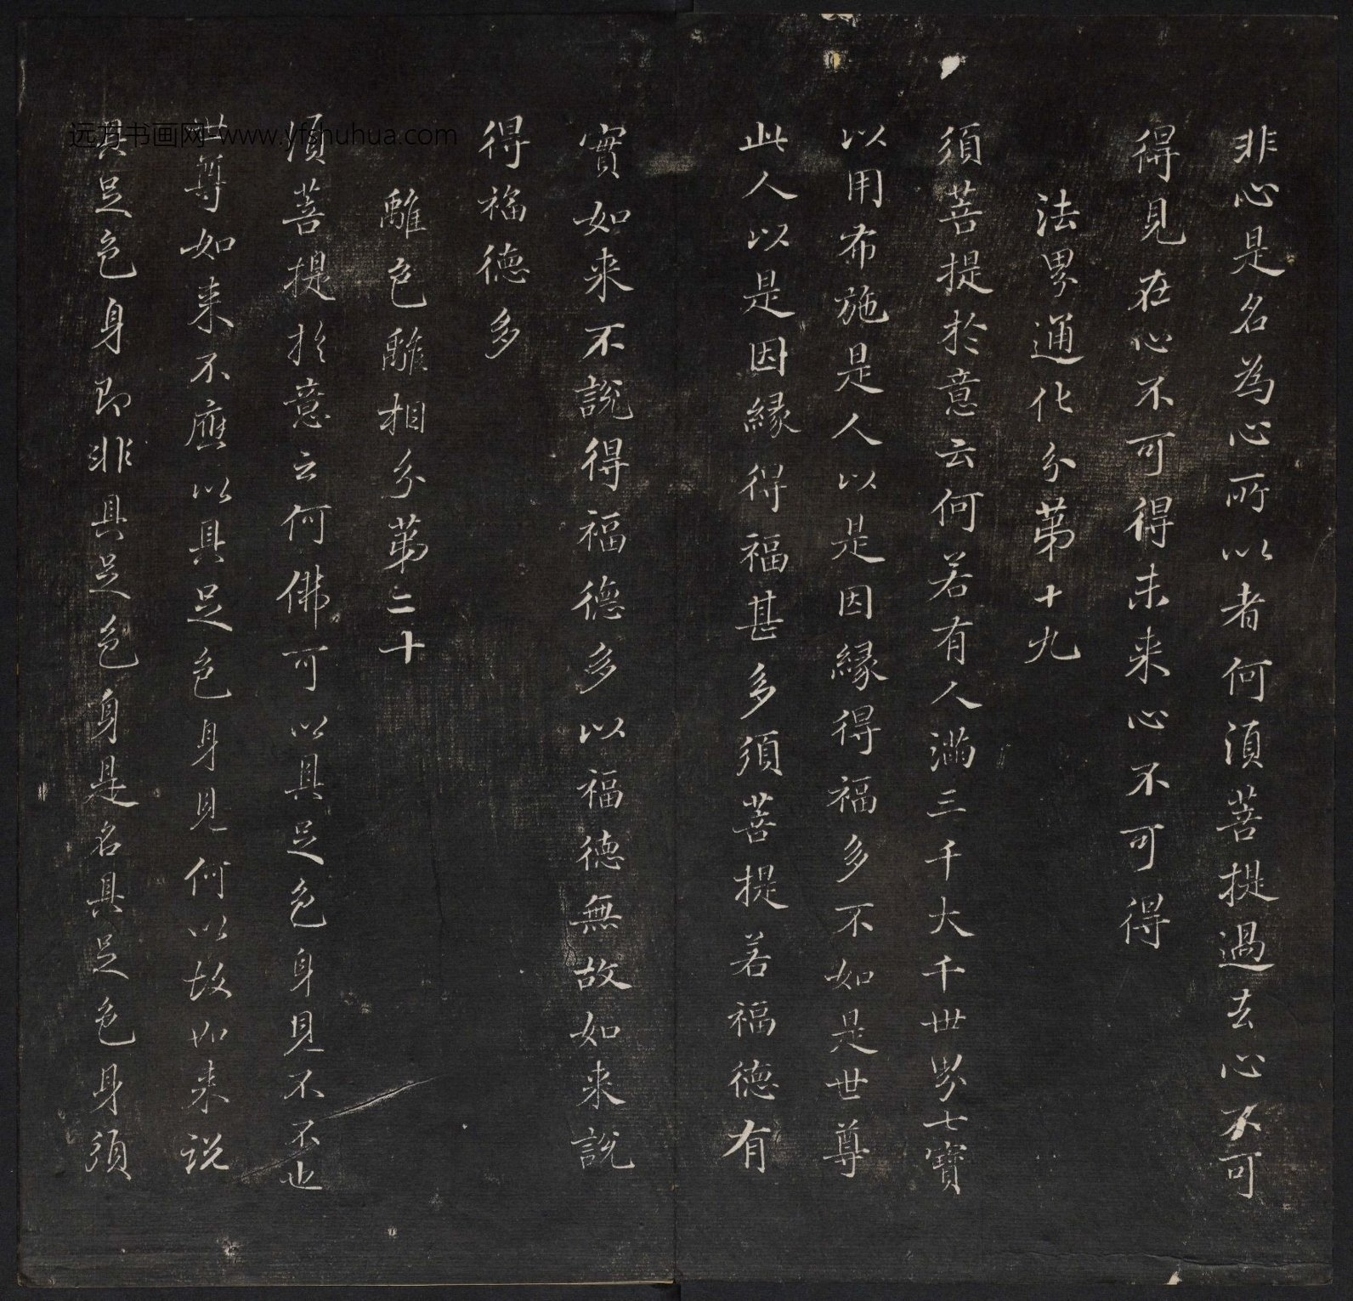 非心是名為心所以者何須菩提過去心不可
得見在心不可得未来心不可得
法界通化分第十九
須菩提於意云何若有人滿三千大千世界七寶
以用布施是人以是因緣得福多不如是世尊
此人以是因緣得福甚多須菩提若福德有
實如来不說得福德多以福德無故如来說
得福德多
離色離相分第二十
須菩提於意云何佛可以具足色身見不不也
世尊如来不應以具足色身見何以故如来說
具足色身即非具足色身是名具足色身須
远方书画网-www.yfshuhua.com